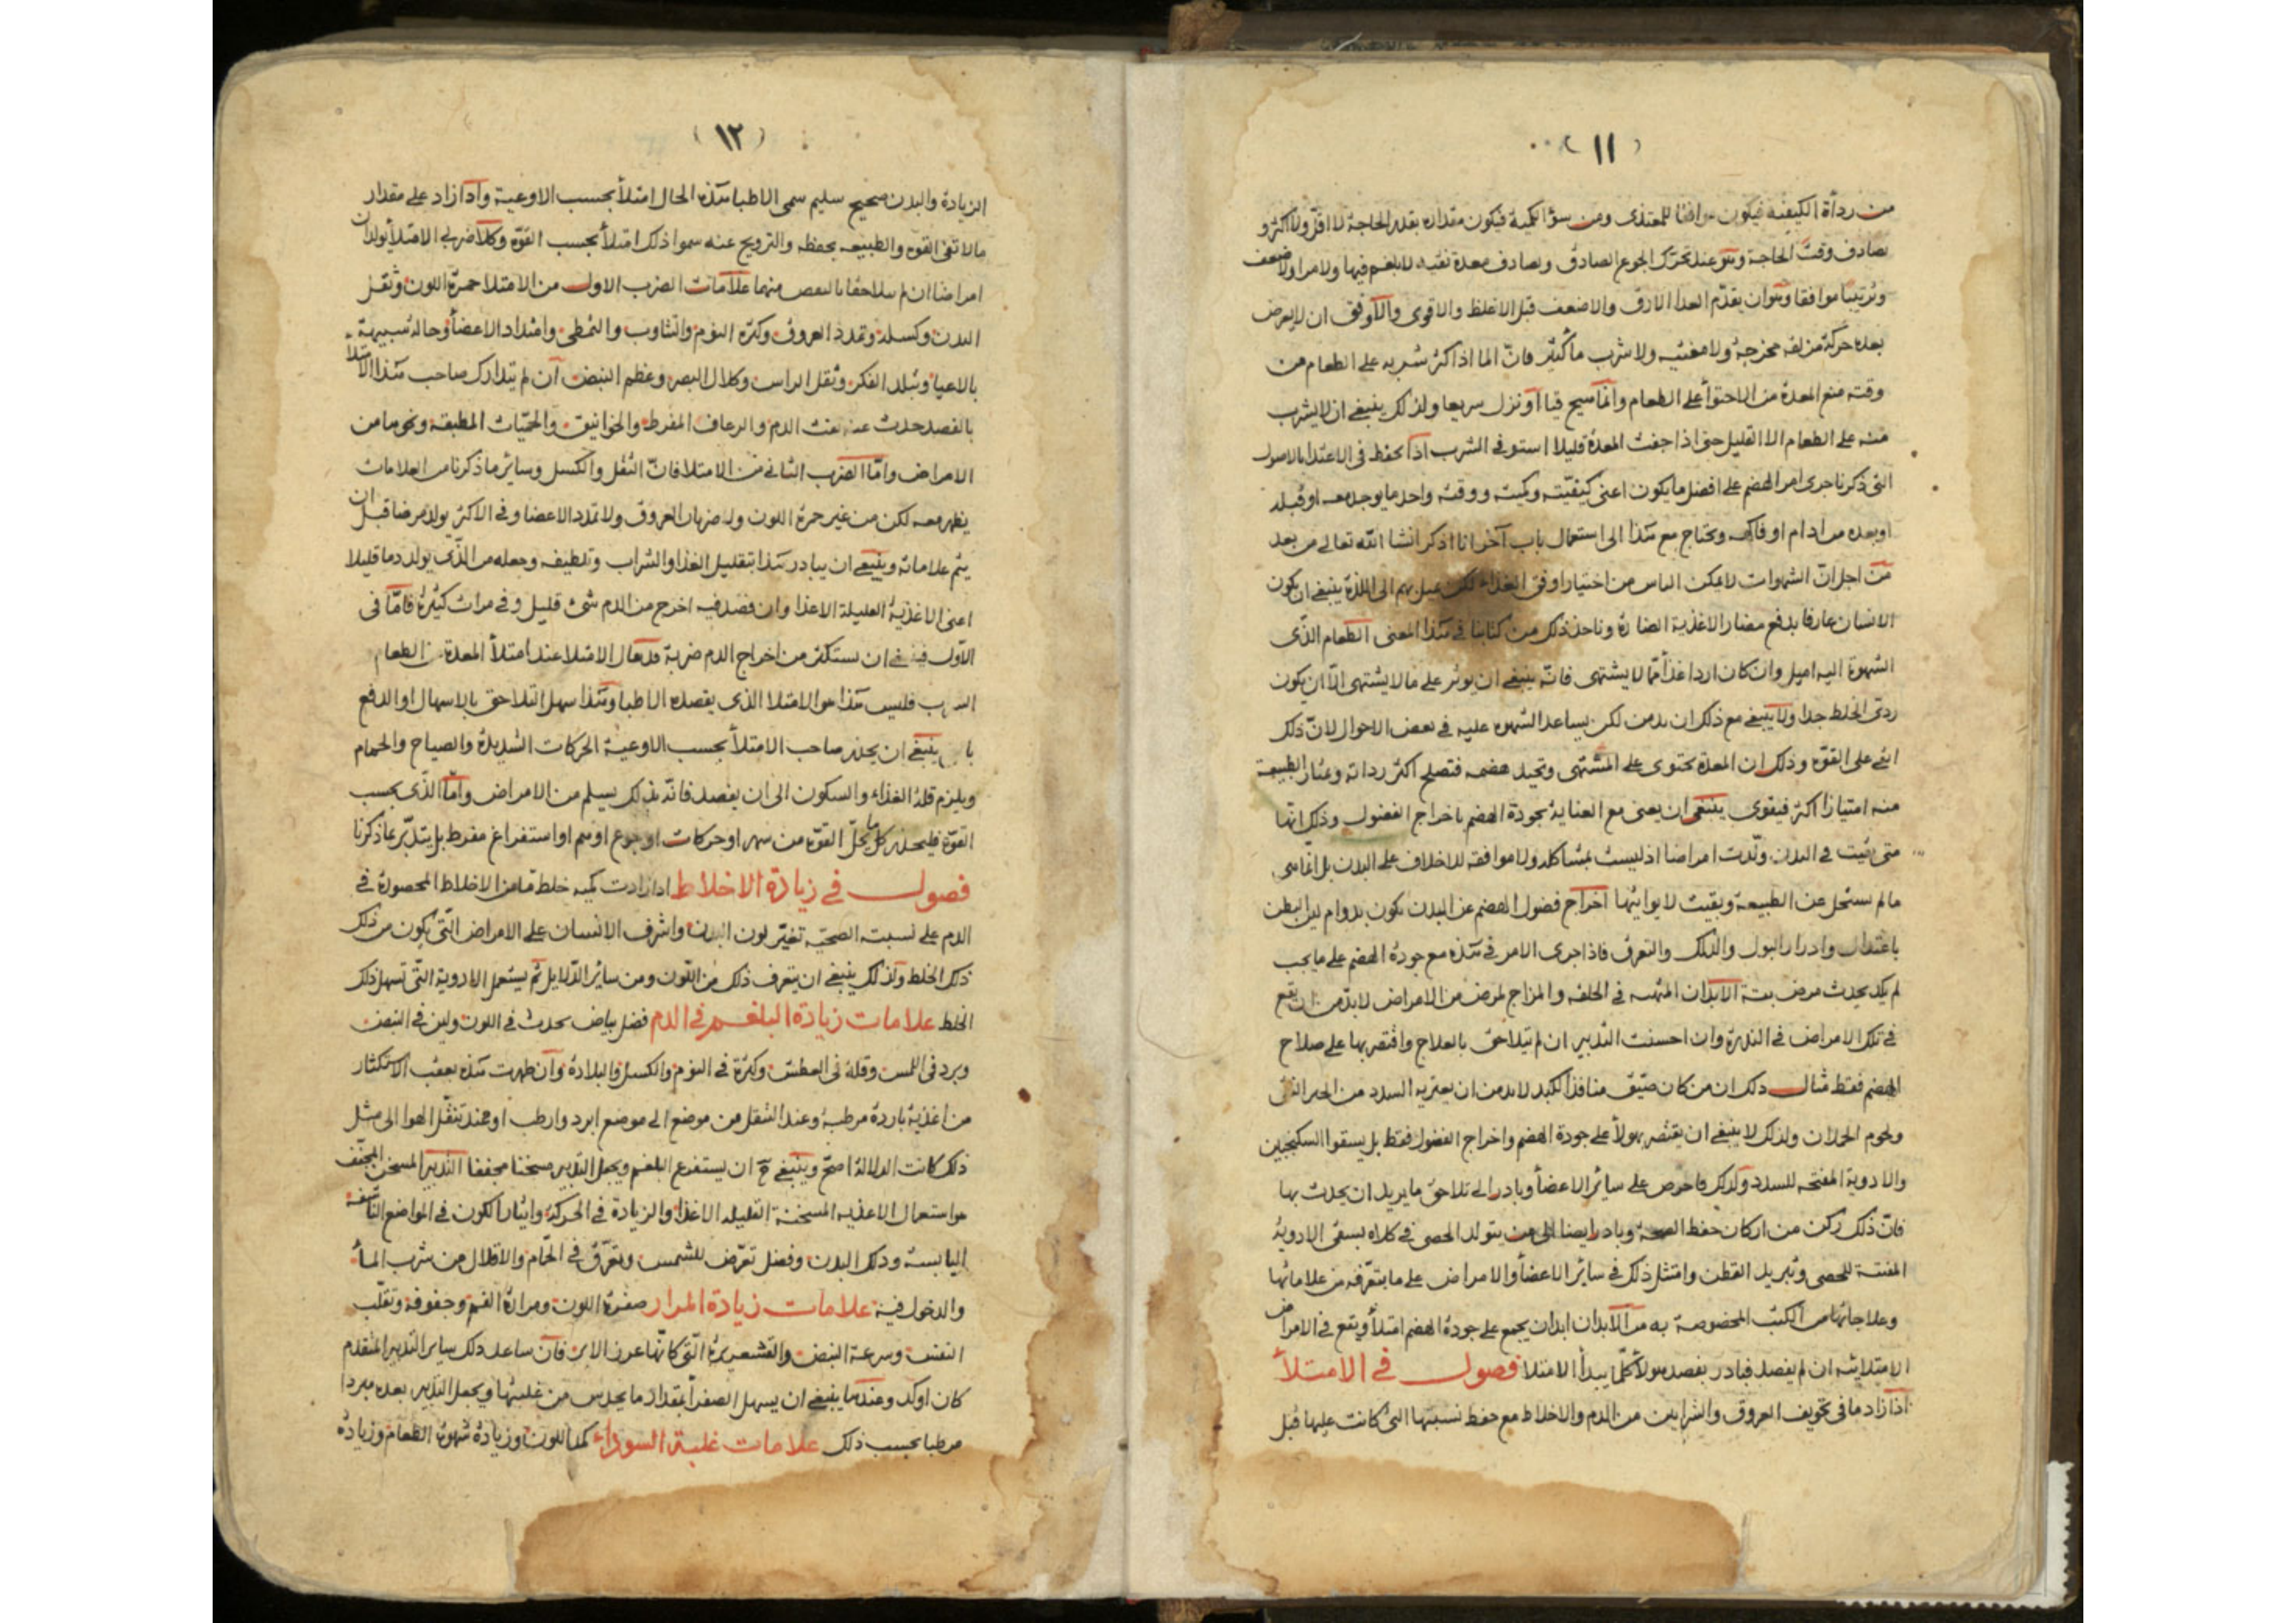 (١١)
من رداءة الكيفية فيكون موافقا للمغتذى ومن سؤ الكمية فيكون مقداره بقدر الحاجة لا اقل ولا اكثر و
يصادف وقت الحاجة وهو عند تحرك الجوع الصادق ويصادف معدة نقيه لا بلغم فيها ولا مرار ولا ضعف
وترتيبا موافقا وهو ان يقدم الغذا الارق والاضعف قبل الاغلظ والاقوى والاوفق ان لا يعرض
بعده حركة مزلقه مخرجة ولا معنته ولا شرب ما كثير فان الما اذا كثر شربه على الطعام من
وقته منع المعدة من الاحتوأ على الطعام وانما قيا او نزل سريعا ولذلك ينبغى ان لا يشرب
منه على الطعام الا القليل حتى اذا جفت المعدة قليلا استوفى الشرب اذا تحفظ فى الاغتذا بالاصول
التى ذكرنا جرى امر الهضم على افضل ما يكون اعنى كيفيته وكميته ووقته واحد ما يوجد معه او قبله
او بعده من ادام او فاكهه ونحتاج مع هذا الى استعمال باب آخر انا اذكر انشا الله تعالى من بعد
من اجل ان الشهوات لا يمكن الناس من اختيار اوفق الغذاء لكن عيل بهم الى اللذة ينبغى ان يكون
الانسان عارفا بدفع مضار الاغذية الضارة وناخذ ذلك من كتابنا فى هذا المعنى الطعام الذى
الشهوة اليه اميل وان كان اردا غذأ مما لا يشتهى فانه ينبغى ان يوثر على ما لا يشتهى الا ان يكون
ردئ الخلط جدا ولا ينبغى مع ذلك ان يدمن لكن يساعد الشهوه عليه فى بعض الاحوال لان ذلك
ابقى على القوة وذلك ان المعدة تحتوى على المشتهى وتجيد هضمه فتصلح اكثر رداته وتمتار الطبيعة
منه امتيازا اكثر فيقوى ينبغى ان يعنى مع العناية بجودة الهضم باخراج الفضول وذلك انها
متى بقيت فى البدن ولدت امراضا اذ ليست بمشاكله ولا موافقه للاخلاف على البدن بل انما هى
ما لم يستحل عن الطبيعة وبقيت لا يواتيها اخراج فضول الهضم عن البدن يكون بدوام لين البطن
باعتدال وادرار البول والدلك والتعرق فاذا جرى الامر فى هذه مع جودة الهضم على ما يجب
لم يكد يحدث مرض بتة الابدان المتهيه فى الخلقه والمزاج لمرض من الامراض لا بد من ان يقع
فى تلك الامراض فى الندرة وان احسنت التدبير ان لم يتلاحق بالعلاج واقتصر بها على صلاح
الهضم فقط مثال ذلك ان من كان ضيق منافذ الكبد لا بد من ان يعتريه السدد من الخبز النقى
ولحوم الحملان ولذلك لا ينبغى ان يقتصر بهولأ على جودة الهضم واخراج الفضول فقط بل يسقوا السكنجبين
والادوية المفتحه للسدد وكذلك فاحرص على سائر الاعضأ وبادر الى تلاحق ما يريد ان يحدث بها
فان ذلك ركن من اركان حفظ الصحة وبادر ايضا الى من يتولد الحصى فى كلاه بسقى الادوية
المفتتة للحصى وتبريد القطن وامتثل ذلك فى سائر الاعضأ والامراض على ما يتعرفه من علاماتها
وعلاجاتها من الكتب المخصوصة به من الابدان ابدان يجمع على جودة الهضم امتلأ ويقع فى الامراض
الامتلائيه ان لم يفصد فبادر بفصد هولأ كلما يبدأ الامتلا فصول فى الامتلأ
اذا زاد ما فى تجويف العروق والشرايين من الدم والاخلاط مع حفظ نسبتها التى كانت عليها قبل
(١٢)
الزيادة والبدن صحيح سليم سمى الاطبا هذه الحال امتلأ بحسب الاوعية واذا زاد على مقدار
ما لا تفى القوه والطبيعه بحفظه والترويح عنه سموا ذلك امتلأ بحسب القوة وكلا ضربى الامتلأ يولدان
امراضا ان لم يتلاحقا بالنقص منهما علامات الضرب الاول من الامتلا حمرة اللون وثقل
البدن وكسله وتمدد العروق وكثره النوم والتثاوب والتمطى وامتداد الاعضأ وحاله شبيهة
بالاعيا وتبلد الفكر وثقل الراس وكلال البصر وعظم النبض ان لم يتدارك صاحب هذا الامتلا
بالفصد حدث عنه نفث الدم والرعاف المفرط والخوانيق والحميات المطبقة ونحوها من
الامراض واما الضرب الثانى من الامتلا فان الثقل والكسل وسائر ما ذكرنا من العلامات
يظهر معه لكن من غير حمرة اللون ولا ضربان العروق ولا تمدد الاعضا وفى الاكثر يولد مرضا قبل ان
يتم علاماته وينبغى ان يبادر هذا بتقليل الغذا والشراب وتلطيفه وجعله من الذى يولد دما قليلا
اعنى الاغذية القليلة الاغذا وان فصد فيه اخرج من الدم شئ قليل وفى مرات كثيرة فاما فى
الاول فينبغى ان يستكثر من اخراج الدم ضربة قد يقال الامتلا عند امتلأ المعدة من الطعام
فليس هذا هو الامتلا الذى يقصده الاطبا وهذا سهل التلاحق بالاسهال او الدفع
ينبغى ان يحذر صاحب الامتلأ بحسب الاوعية الحركات الشديدة والصياح والحمام
ويلزم قلة الغذاء والسكون الى ان يفصد فانه بذلك يسلم من الامراض واما الذى بحسب
القوة فليحذر كل ما يحل القوة من سهر او حركات او جوع او هم او استفراغ مفرط بل يتدبر بما ذكرنا
فصول فى زيادة الاخلاط اذا زادت كميه خلط ما من الاخلاط المحصورة فى
الدم على نسبته الصحيه تغير لون البدن واشرف الانسان على الامراض التى يكون من ذلك
ذلك الخلط ولذلك ينبغى ان يتعرف ذلك من اللون ومن سائر الدلايل ثم يستعمل الادوية التى تسهل ذلك
الخلط علامات زيادة البلغم فى الدم فضل بياض يحدث فى اللون ولين فى النبض
وبرد فى اللمس وقلة فى العطش وكثرة فى النوم والكسل والبلادة وان ظهرت هذه بعقب الاستكثار
من اغذية باردة مرطبة وعند التنقل من موضع الى موضع ابرد وارطب او عند تنقل الهوا الى مثل
ذلك كانت الدلالة اصح وينبغى ح ان يستفرغ البلغم ويجعل التدبير مسخنا مجففا التدبير المسخن المجفف
هو استعمال الاغذيه المسخنة القليله الاغذا والزيادة فى الحركة وايثار الكون فى المواضع الناشفة
اليابسة ودلك البدن وفضل تعرض للشمس وتعرق فى الحمام والاقلال من شرب المأ
والدخول فيه علامات زيادة المرار صفرة اللون ومرارة الفم وجفوفه وتقلب
النفس وسرعة النبض والقشعريرة التى كانها عن غرز الابر فان ساعد ذلك ساير التدبير المتقدم
كان اوكد وعندها ينبغى ان يسهل الصفرأ بمقدار ما يحدس من غلبتها ويجعل التدبير بعده مبردا
مرطبا بحسب ذلك علامات غلبة السوداء كمد اللون وزيادة شهوة الطعام وزيادة